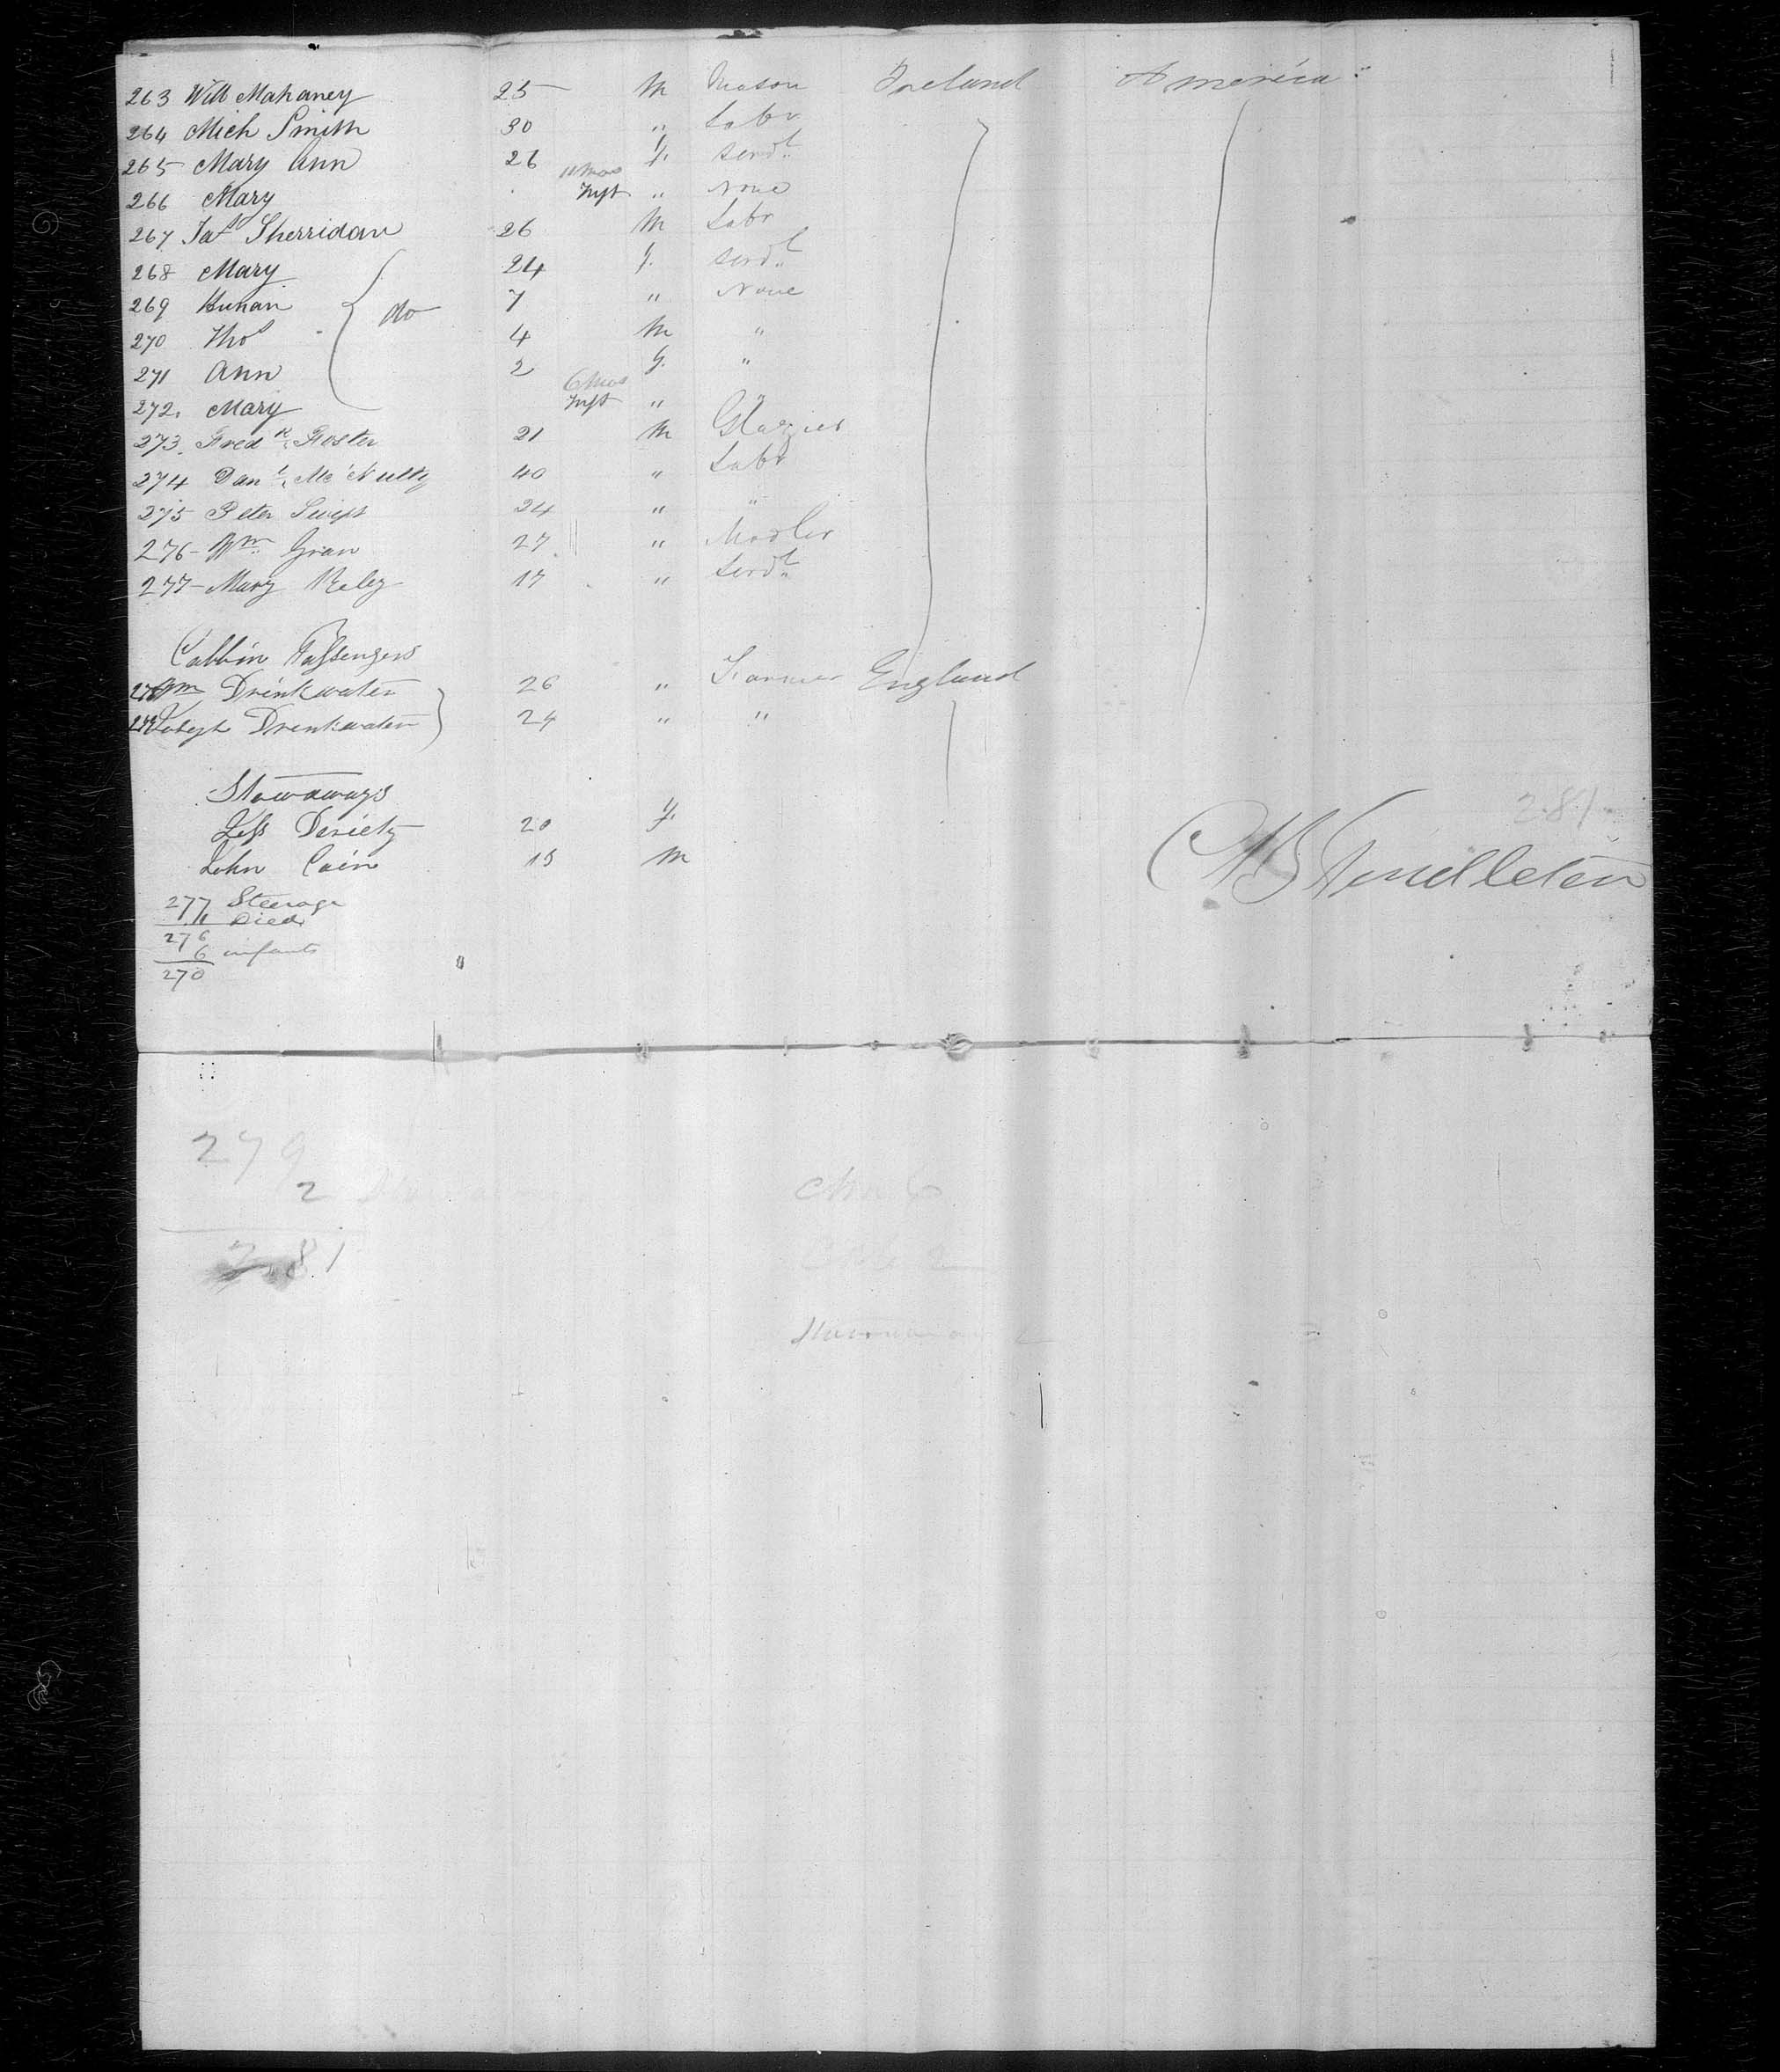 263 Will Mahaney 25 M Mason Ireland America
264 Mich Smith 30 " Labr
265 Mary Ann 26 f. Servt
266 Mary 11 mos Inft " None
267 Jas Sherridan 26 M Labr
268 Mary 24 f. Servt
269 do 7 " None
270 Thos 4 M "
271 Ann 2 f. "
272. Mary 6 mos Inft "
273. Fredk Foster 21 M Glazier
274 Danl. McNulty 40 " Labr
275 Peter Swift 24 " "
276 - Wm Gran 27 " Modler
277 - Mary Reley 17 " Servt
Cabbin Passengers
278 Wm Drinkwater 26 " Farmer England
279 Drinkwater 24 " "
Stowaways
20 f.
John Cain 15 M
281
Pendleton
277 Steerage
1 Died
276
6 infants
270
279
2
281